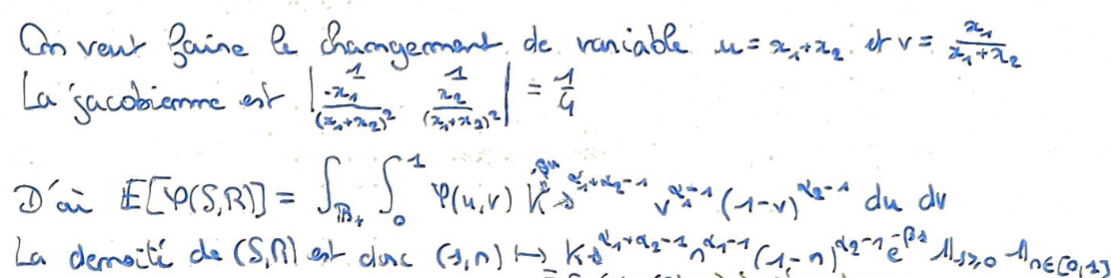 On veut faire le changement de variable u = x₁+x₂ et v = x₁/(x₁+x₂)
La jacobienne est | 1 1 ; -x₁/(x₁+x₂)² x₂/(x₁+x₂)² | = 1/4
D'où E[φ(S,R)] = ∫_{ℝ₊} ∫₀¹ φ(u,v) K s^{α₁+α₂-1} v^{α₁-1} (1-v)^{α₂-1} du dv
La densité de (S,R) est donc (s,r) ↦ K s^{α₁+α₂-1} r^{α₁-1} (1-r)^{α₂-1} e^{-βs} 𝟙_{s≥0} 𝟙_{r∈[0,1]}